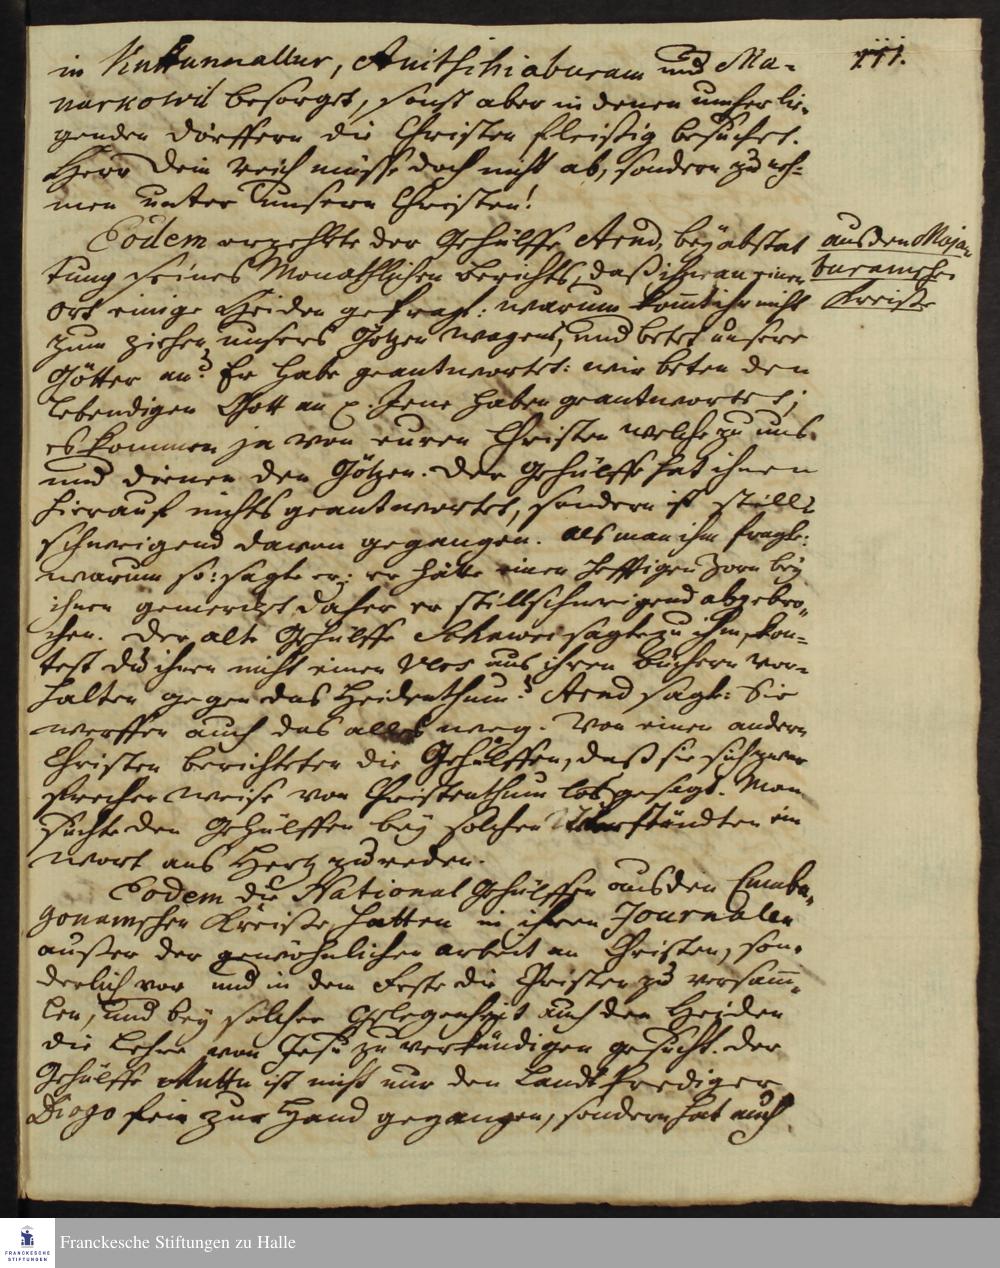 777.
in Kuttannallur, Anitschiaburam und Ma-
narkowil besorget, sonst aber in denen umher lie-
genden Dörffern die Christen fleißig besuchet.
Herr dein reich müsse doch nicht ab, sondern zu neh-
men unter unsern Christen!
Eodem erzehlte der Gehülffe Arud, bey abstat
tung seines Monathlichen berichts, daß ihn an einen
ort einige Heiden gefragt: warum komt ihr nicht
zum ziehen unsers Götzen wagens, und betet unsere
Götter an? Er habe geantwortet: wir beten den
lebendigen Gott an p. Jene haben geantwortet;
es kommen ja von euren Christen welche zu uns
und dienen den Götzen. Der Gehülffe hat ihnen
hierauf nichts geantwortet, sondern ist still-
schweigend davon gegangen. Als man ihn fragte:
warum so: sagte er: er hätte einen hefftigen Zorn bey
ihnen gemerckt daher er stillschweigend abgebro-
chen. Der alte Gehülffe sagte zu ihm, kon-
test du ihnen nicht einen Vers aus ihren büchern vor-
halten gegen das Heidenthum? Arud sagte: Sie
werffen auch das alles weg. Von einen andern
Christen berichteten die Gehülffen, daß sie sich zwar
sprecher weise von Christenthum losgesagt. Man
suchte den Gehülffen bey solchen Umständten ein
wort ans Hertz zu reden.
Eodem die National Gehülffen aus den Cumba-
gonamschen Kreiße, hatten in ihren Journalen
außer der gewöhnlichen arbeit an Christen, son-
derlich vor und in dem Feste die Christen zu versamm-
len, und bey solcher Gelegenheit auch den Heiden
die Lehre von Jesu zu verkündigen gesucht. Der
Gehülffe Muttu ist nicht nur den Landtprediger
Diogo fein zur Hand gegangen, sondern hat auch
aus den Majan
buramsche
Kreiße
FRANCKESCHE
STIFTUNGEN
Franckesche Stiftungen zu Halle